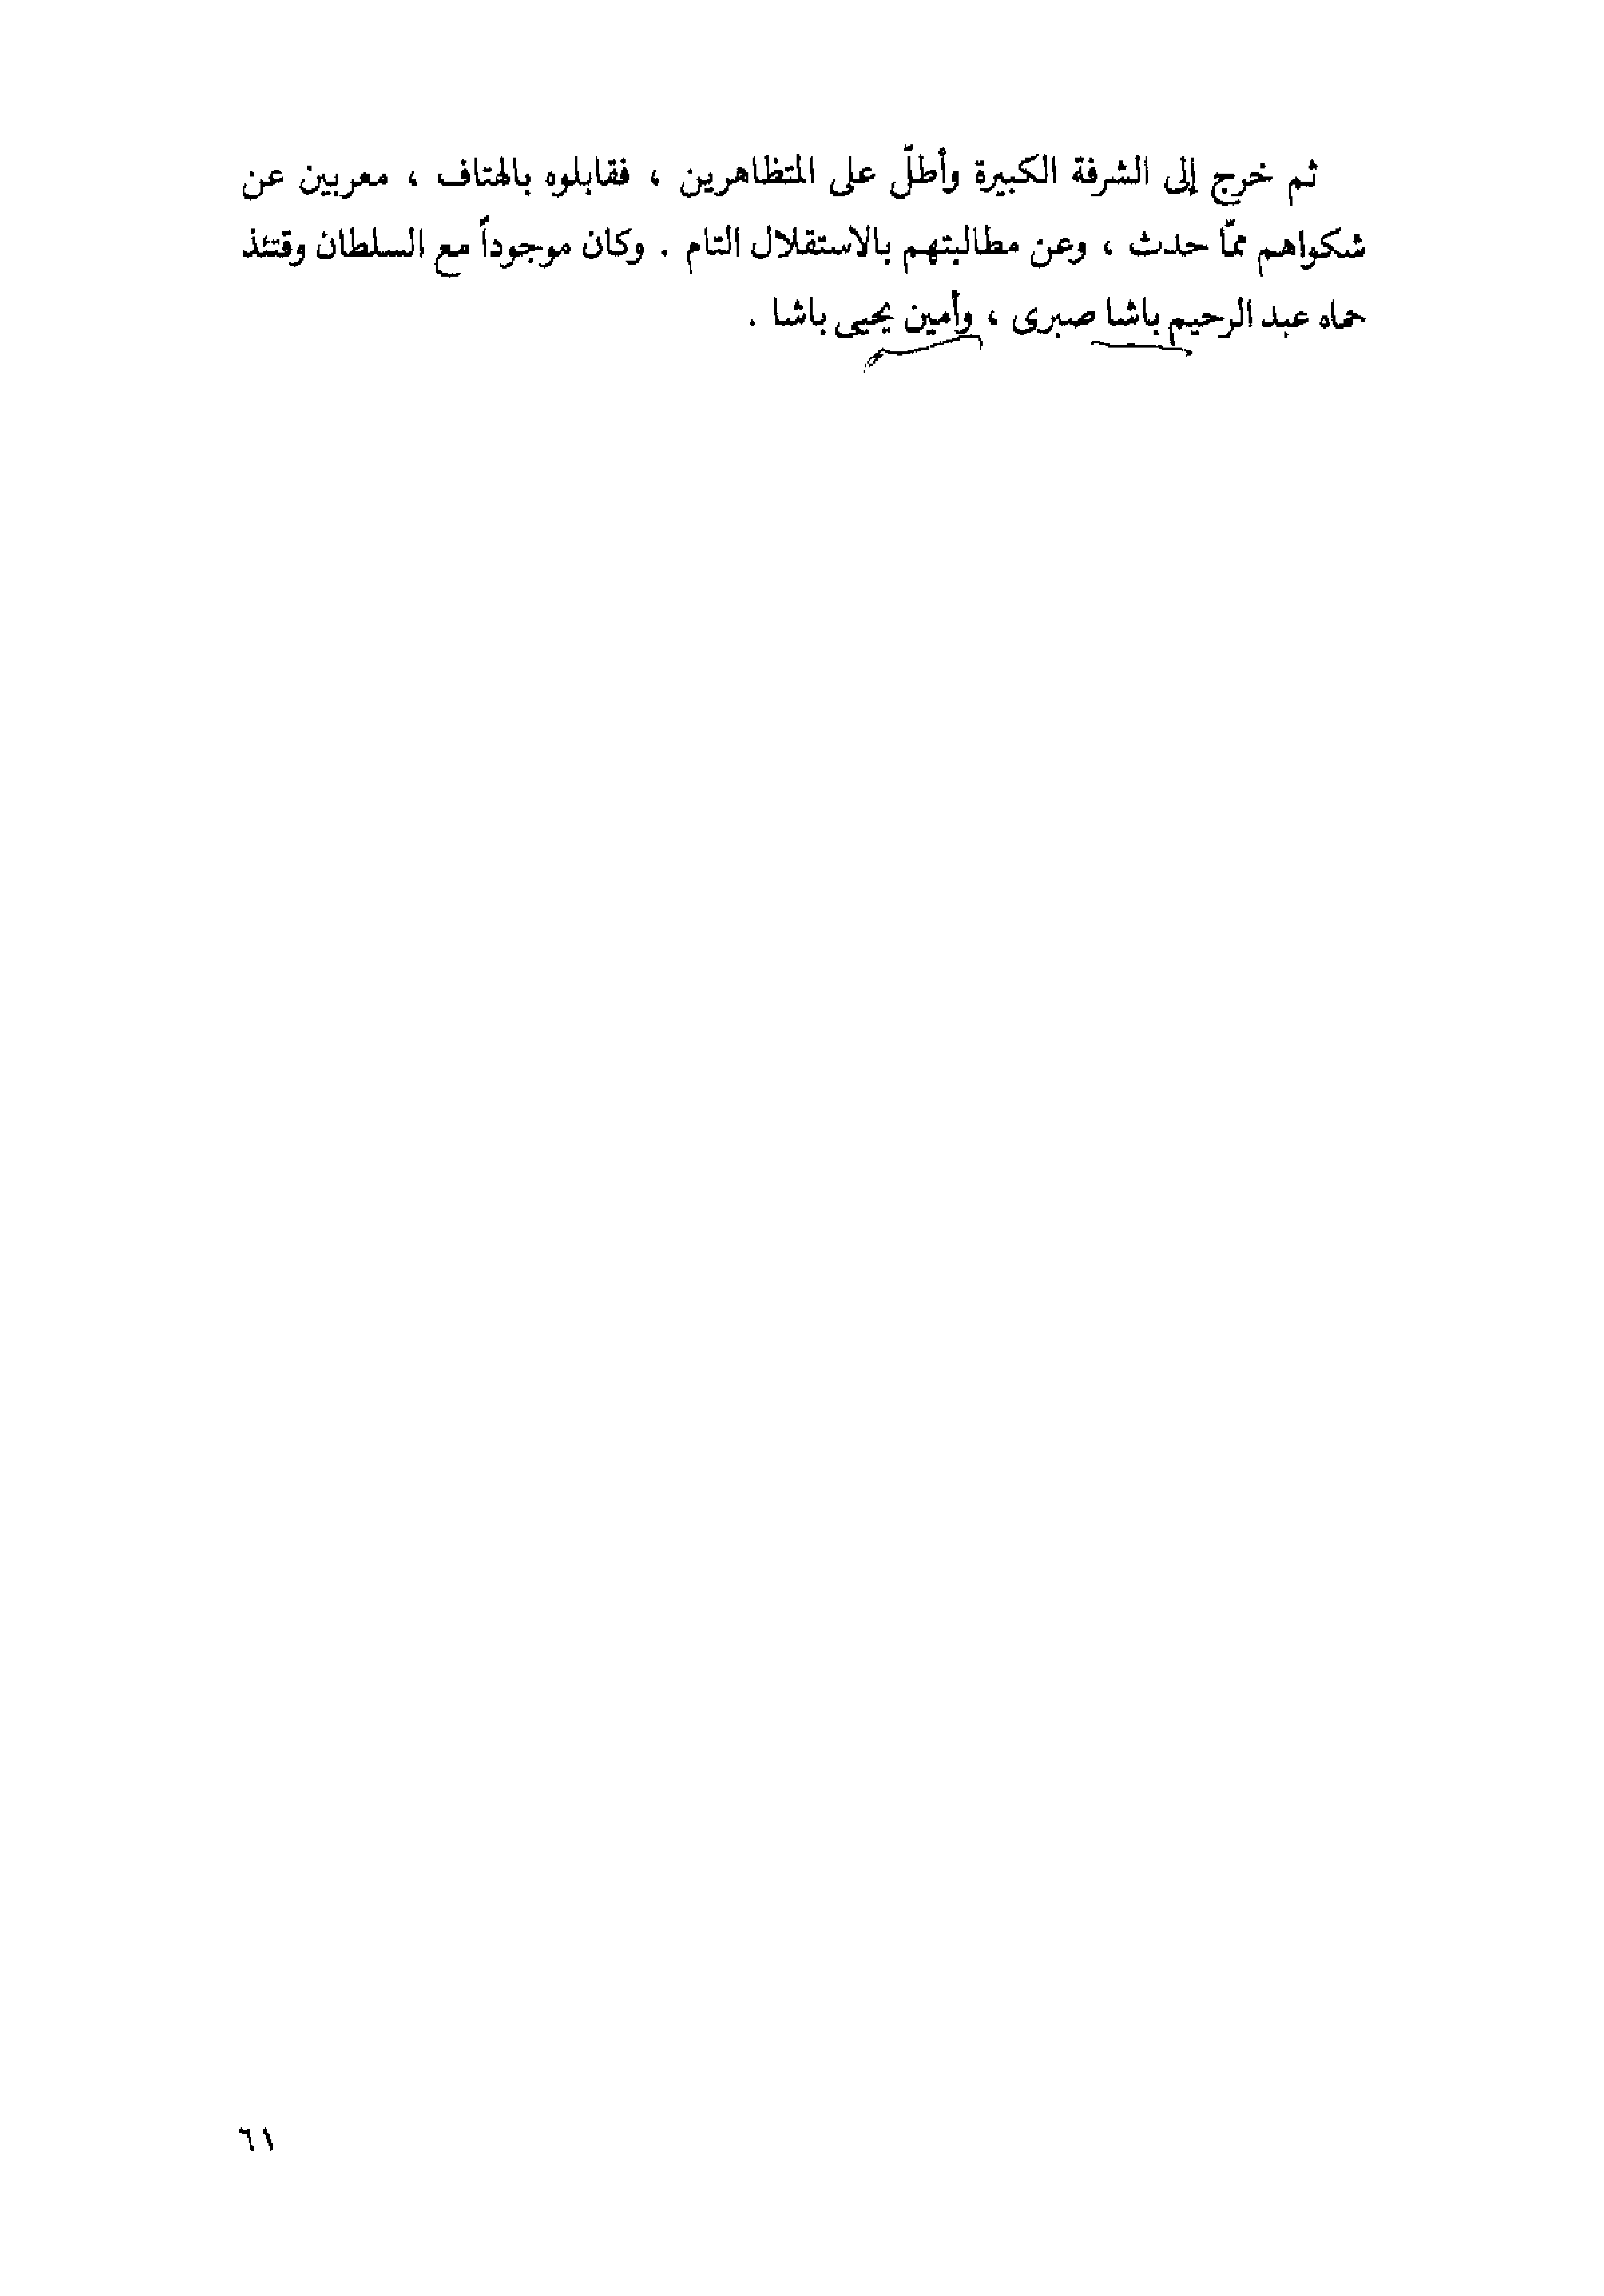 ثم خرج إلى الشرفة الكبيرة وأطلّ على المتظاهرين ، فقابلوه بالهتاف ، معربين عن
شكواهم ممّا حدث ، وعن مطالبتهم بالاستقلال التام . وكان موجوداً مع السلطان وقتئذ
حماه عبد الرحيم باشا صبرى ، وأمين يحيى باشا .
٦١